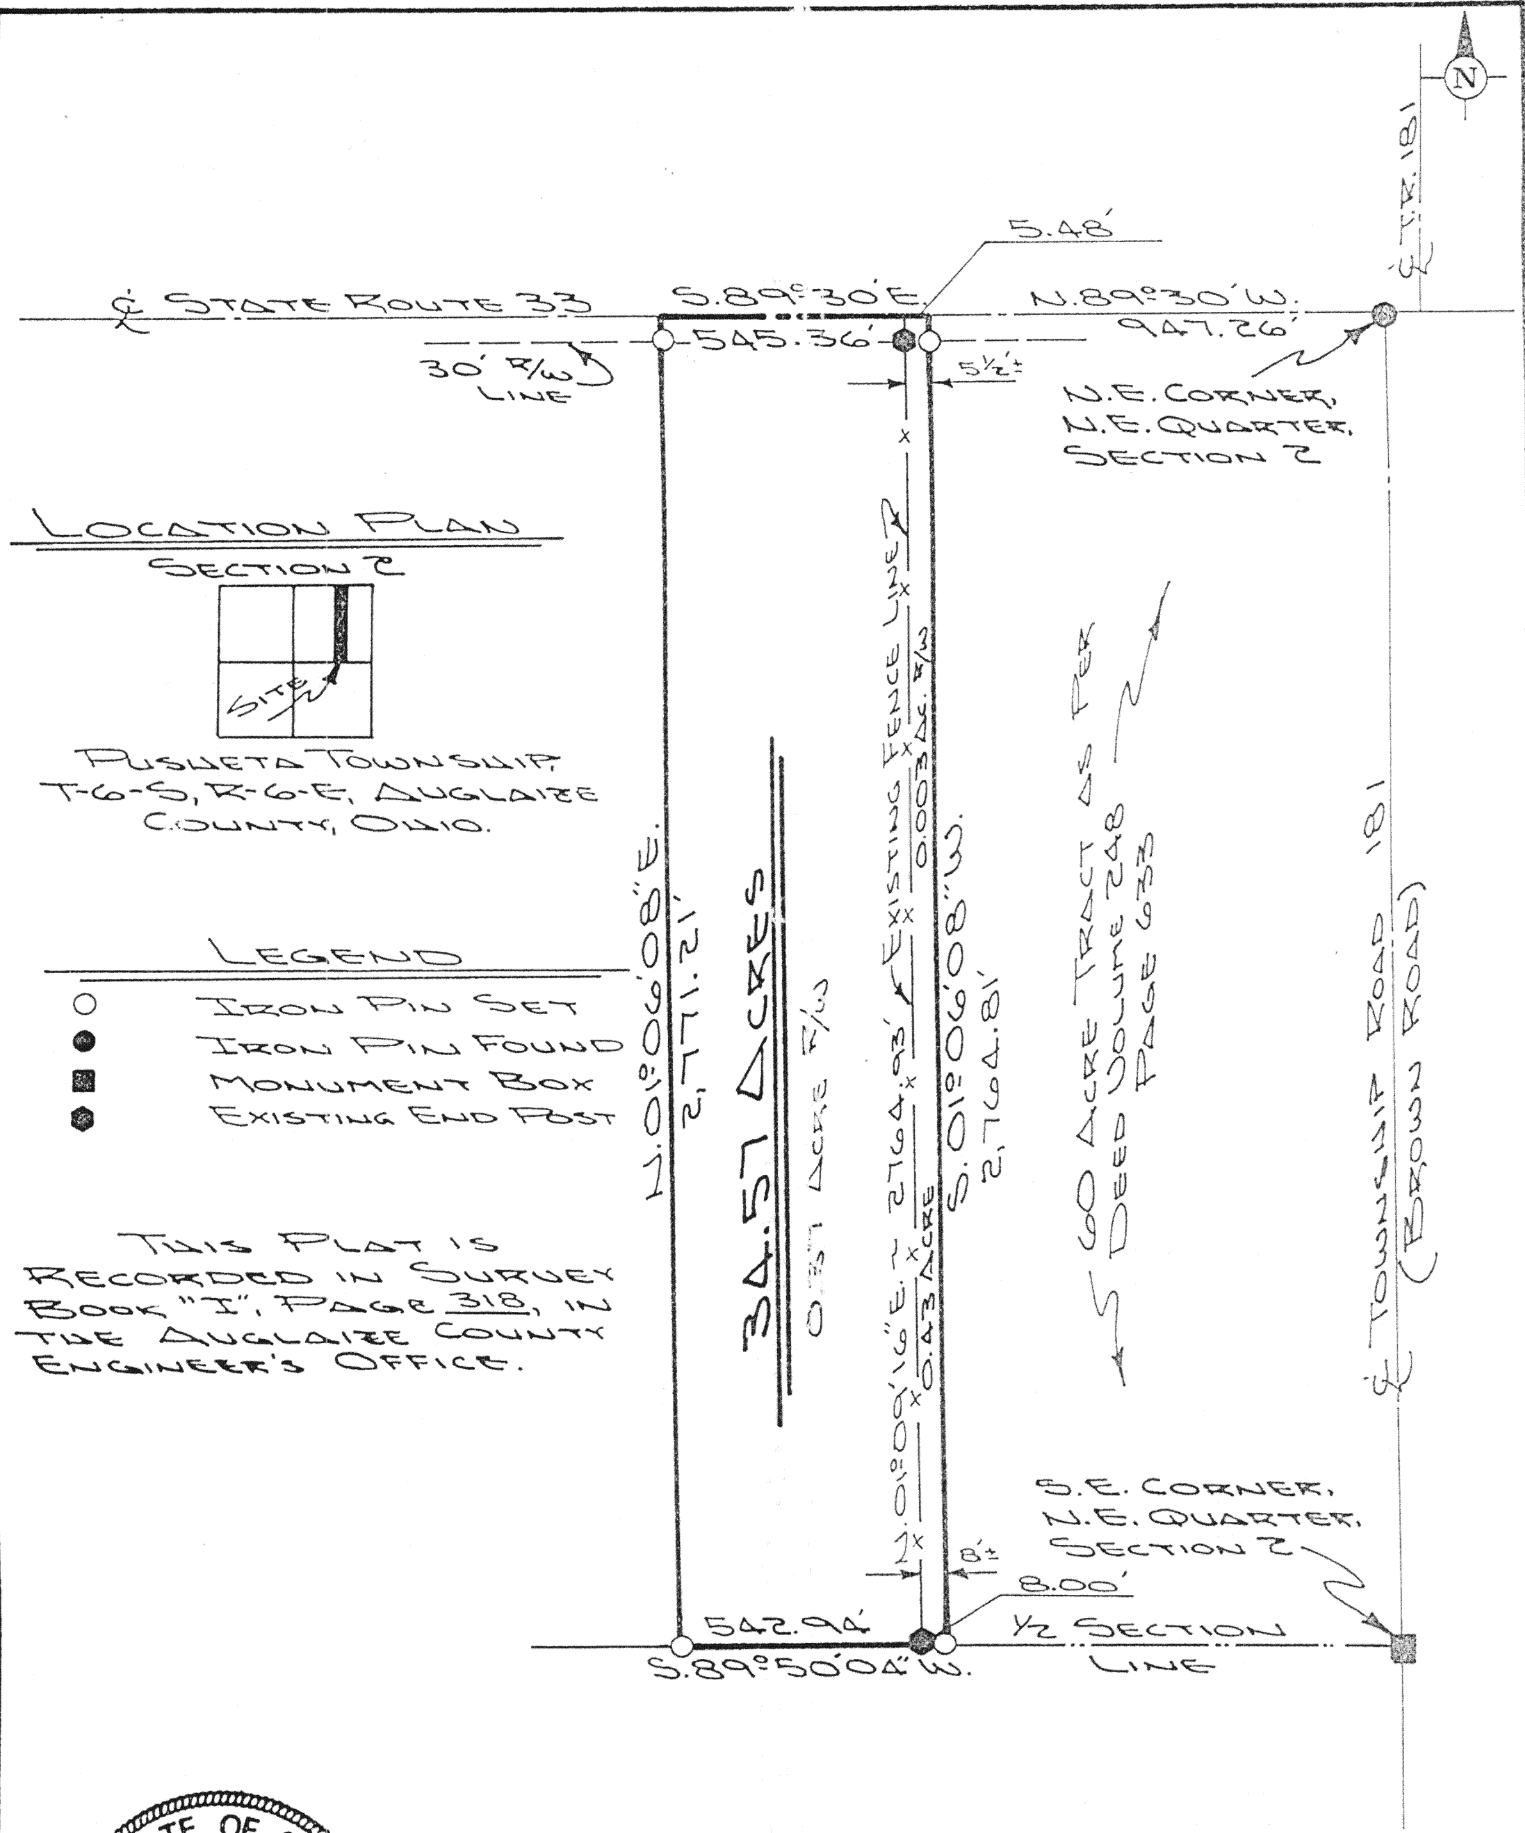 N
℄ T.R. 181
5.48'
℄ STATE ROUTE 33
S.89°30'E.
545.36'
N.89°30'W.
947.26'
30' R/W
LINE
5½'±
N.E. CORNER,
N.E. QUARTER,
SECTION 2
LOCATION PLAN
SECTION 2
SITE
PUSHETA TOWNSHIP,
T-6-S, R-6-E, AUGLAIZE
COUNTY, OHIO.
LEGEND
IRON PIN SET
IRON PIN FOUND
MONUMENT BOX
EXISTING END POST
THIS PLAT IS
RECORDED IN SURVEY
BOOK "I", PAGE 318, IN
THE AUGLAIZE COUNTY
ENGINEER'S OFFICE.
N.01°06'08"E.
2,771.21'
34.57 ACRES
ACRE R/W
N.01°09'16"E. ~ 2764.93'
EXISTING FENCE LINE
0.003 AC. R/W
0.43 ACRE
S.01°06'08"W.
2,764.81'
60 ACRE TRACT AS PER
DEED VOLUME 248
PAGE 633
℄ TOWNSHIP ROAD 181
(BROWN ROAD)
S.E. CORNER,
N.E. QUARTER,
SECTION 2
8'±
8.00'
542.94'
S.89°50'04"W.
½ SECTION
LINE
TE OF